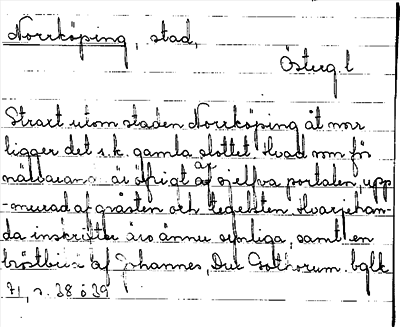 Norrköping, stad,
Österg. l
Strax utom staden Norrköping åt norr
ligger det s.k. gamla slottet. Hvad som för
närvarande är öfrigt af sjelfva portalen, upp-
-murad af gråsten och tegelsten. Hvarjehan-
da inskrifter äro ännu synliga, samt en
bröstbild af Johannes, Dux Gothorum. bglk
71, s. 38 o 39